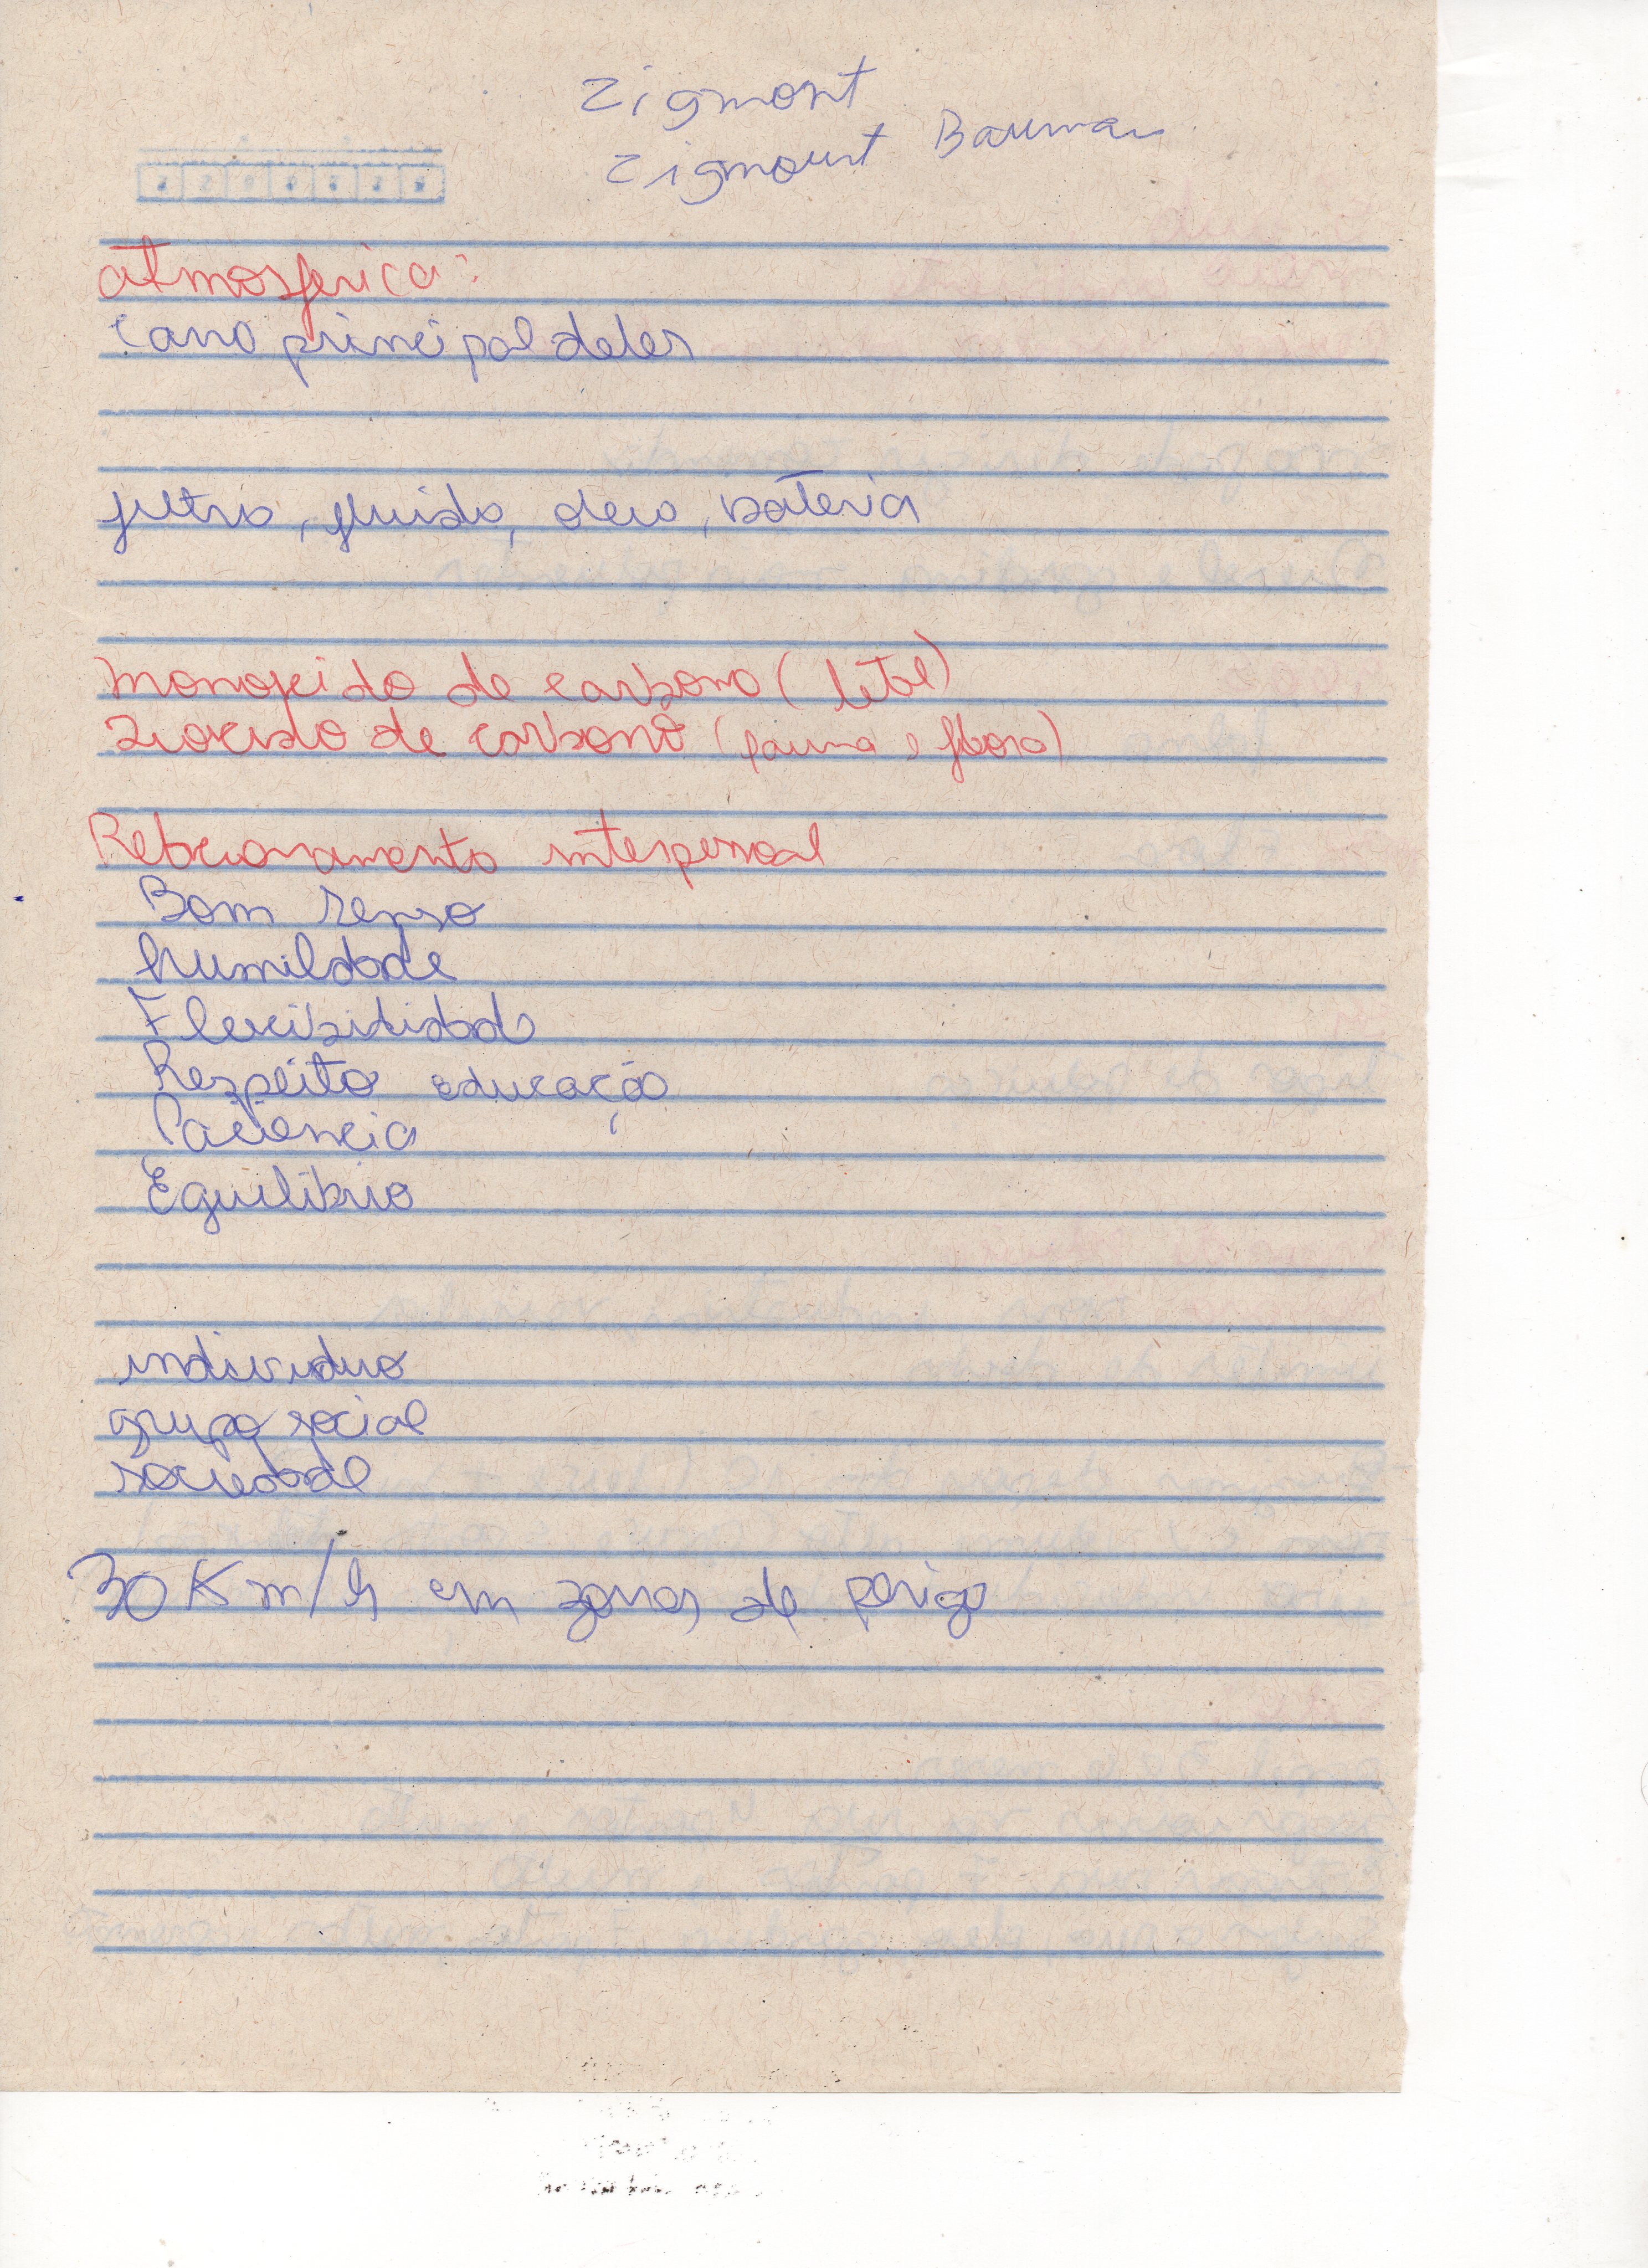 Zigmont
Zigmount Bauman
atmosferica:
cano principal deles
filtro, fluido, oleo, bateria
monoxido de carbono (letal)
Dioxido de carbono (fauna e flora)
Relacionamento interpessoal
Bom senso
humildade
Flexibilidade
Respeito educação
Paciencia
Equilibrio
individuo
grupo social
sociedade
30 Km/h em zonas de perigo